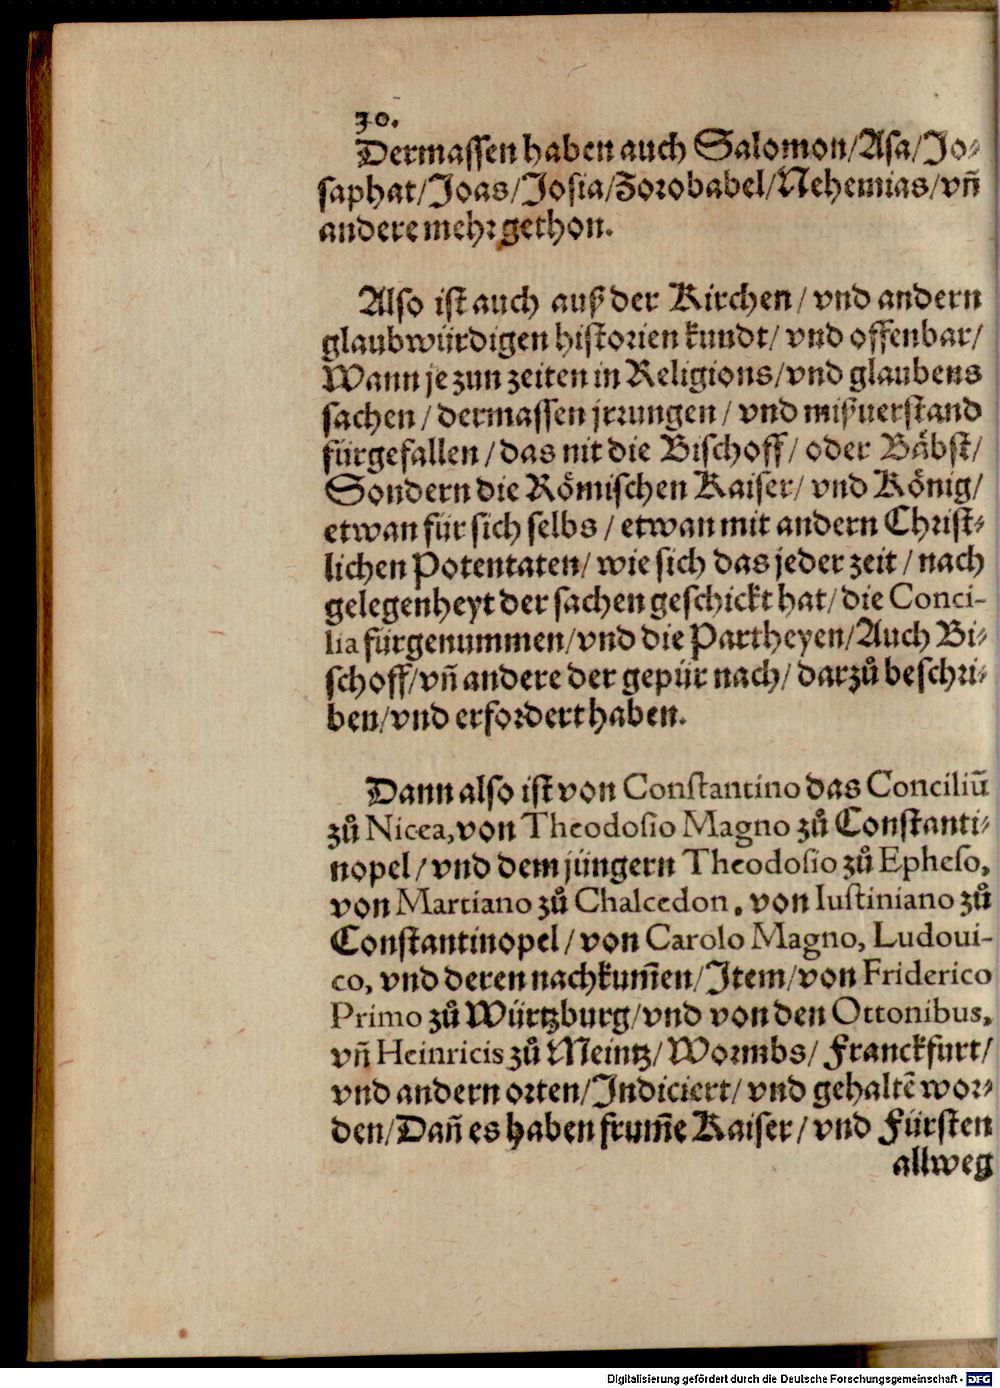 30.
Dermassen haben auch Salomon/Asa/Jo⸗
saphat/Joas/Josia/Zorobabel/Nehemias/vñ
andere mehr gethon.
Also ist auch auß der Kirchen/ vnd andern
glaubwürdigen historien kundt/ vnd offenbar/
Wann je zun zeiten in Religions/vnd glaubens
sachen/ dermassen jrrungen/ vnd mißuerstand
fürgefallen/das nit die Bischoff/ oder Bäbst/
Sondern die Römischen Kaiser/ vnd König/
etwan für sich selbs/ etwan mit andern Christ⸗
lichen Potentaten/ wie sich das jeder zeit/ nach
gelegenheyt der sachen geschickt hat/ die Conci-
lia fürgenummen/vnd die Partheyen/Auch Bi⸗
schoff/vñ andere der gepür nach/ darzů beschri⸗
ben/vnd erfordert haben.
Dann also ist von Constantino das Conciliū
zů Nicea,von Theodosio Magno zů Constanti⸗
nopel/ vnd dem jüngern Theodosio zů Epheso,
von Martiano zů Chalcedon, von Iustiniano zů
Constantinopel/ von Carolo Magno, Ludoui-
co, vnd deren nachkum̄en/Item/von Friderico
Primo zů Würtzburg/vnd von den Ottonibus,
vñ Heinricis zů Meintz/ Wormbs/ Franckfurt/
vnd andern orten/Indiciert/ vnd gehaltē wor⸗
den/Dañ es haben frum̄e Kaiser/ vnd Fürsten
allweg
Digitalisierung gefördert durch die Deutsche Forschungsgemeinschaft - DFG